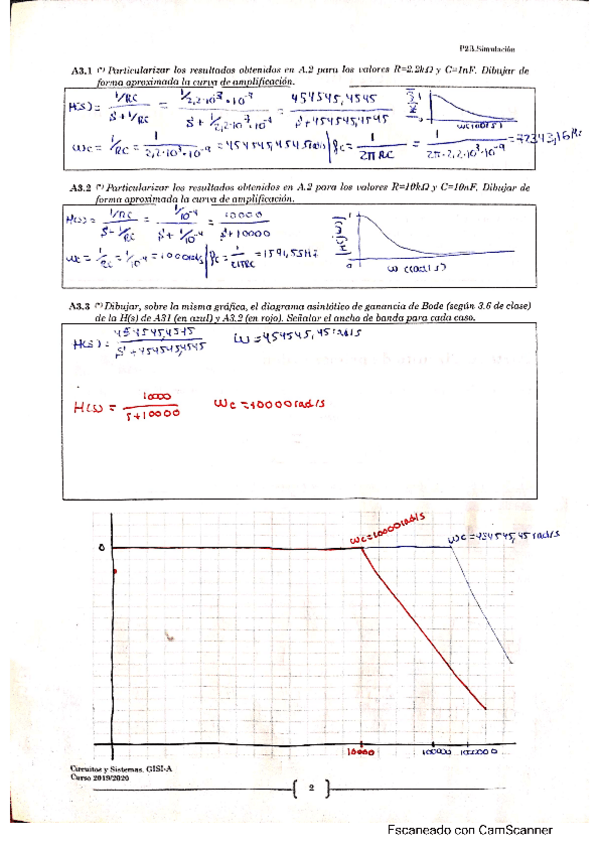 P2.3.Simulación
A3.1 (*) Particularizar los resultados obtenidos en A.2 para los valores R=2.2kΩ y C=1nF. Dibujar de
forma aproximada la curva de amplificación.
H(s) = (1/RC)/(s + 1/RC) = (1/2,2·10³·10⁻⁹)/(s + 1/2,2·10³·10⁻⁹) = 454545,4545/(s + 454545,4545)
1
w(rad/s)
wc = 1/RC = 1/2,2·10³·10⁻⁹ = 454545,454 rad/s | fc = 1/2πRC = 1/2π·2,2·10³·10⁻⁹ = 72343,16 Hz
A3.2 (*) Particularizar los resultados obtenidos en A.2 para los valores R=10kΩ y C=10nF. Dibujar de
forma aproximada la curva de amplificación.
H(s) = (1/RC)/(s - 1/RC) = (1/10⁻⁴)/(s + 1/10⁻⁴) = 10000/(s + 10000)
1
wc = 1/RC = 1/10⁻⁴ = 10000 rad/s | fc = 1/2πRC = 1591,55 Hz
0
w (rad/s)
A3.3 (*) Dibujar, sobre la misma gráfica, el diagrama asintótico de ganancia de Bode (según 3.6 de clase)
de la H(s) de A31 (en azul) y A3.2 (en rojo). Señalar el ancho de banda para cada caso.
H(s) = 454545,4545/(s + 454545,4545) W = 454545,45 rad/s
H(s) = 10000/(s+10000) Wc = 10000 rad/s
wc=10000 rad/s
wc = 454545,45 rad/s
0
10000 100000 1000000
Circuitos y Sistemas. GISI-A
Curso 2019/2020
2
Escaneado con CamScanner